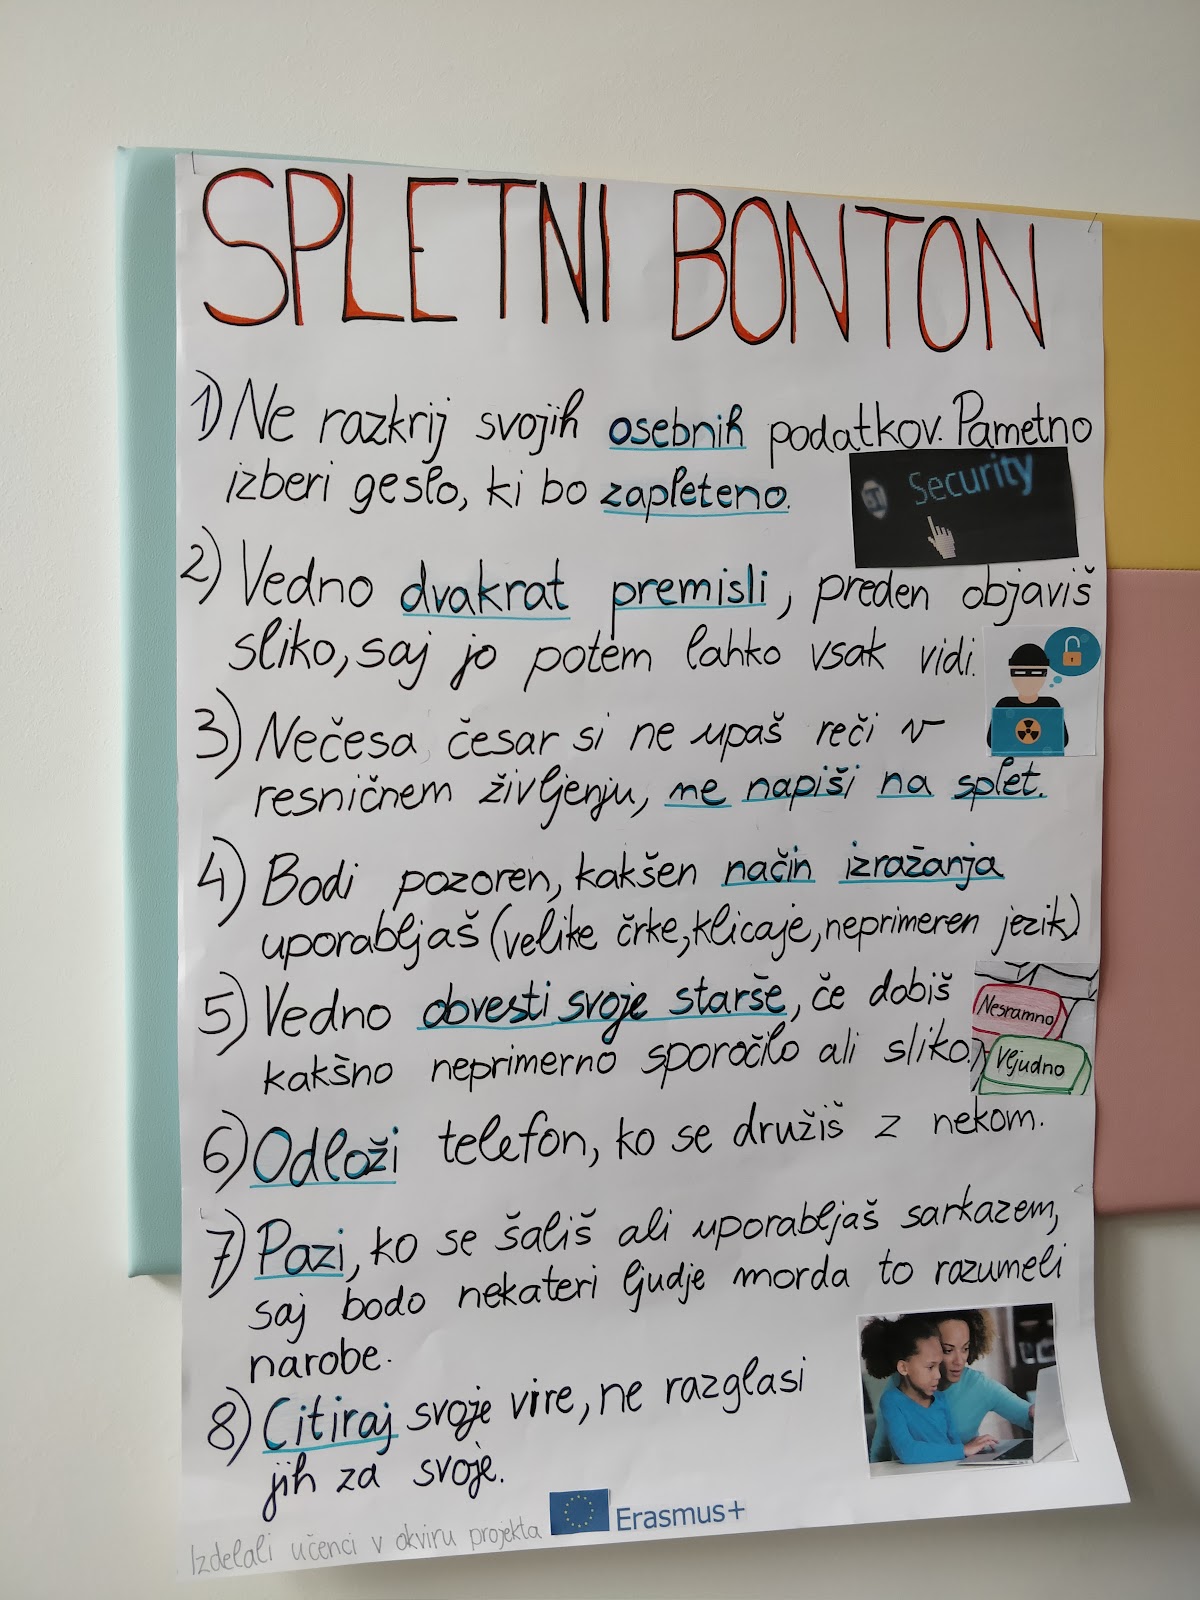 SPLETNI BONTON
1) Ne razkrij svojih osebnih podatkov. Pametno
izberi geslo, ki bo zapleteno.
Security
2) Vedno dvakrat premisli, preden objaviš
sliko, saj jo potem lahko vsak vidi.
3) Nečesa, česar si ne upaš reči v
resničnem življenju, ne napiši na splet.
4) Bodi pozoren, kakšen način izražanja
uporabljaš (velike črke, klicaje, neprimeren jezik)
5) Vedno obvesti svoje starše, če dobiš
kakšno neprimerno sporočilo ali sliko.
Nesramno
Vljudno
6) Odloži telefon, ko se družiš z nekom.
7) Pazi, ko se šališ ali uporabljaš sarkazem,
saj bodo nekateri ljudje morda to razumeli
narobe.
8) Citiraj svoje vire, ne razglasi
jih za svoje.
Izdelali učenci v okviru projekta Erasmus+